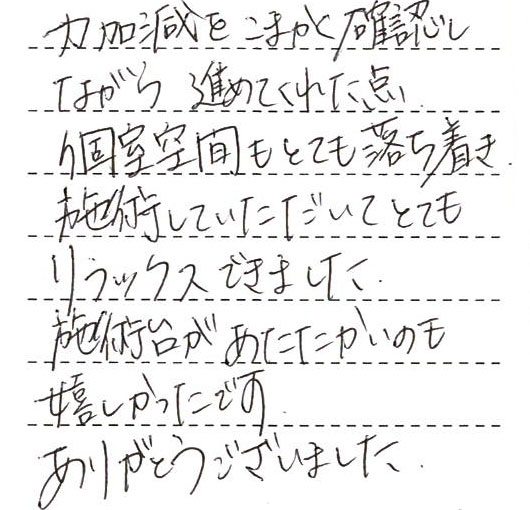 力加減をこまかく確認し
ながら 進めてくれた点.
個室空間もとても落ち着き.
施術していただいてとても
リラックスできました.
施術台があたたかいのも
嬉しかったです.
ありがとうございました.